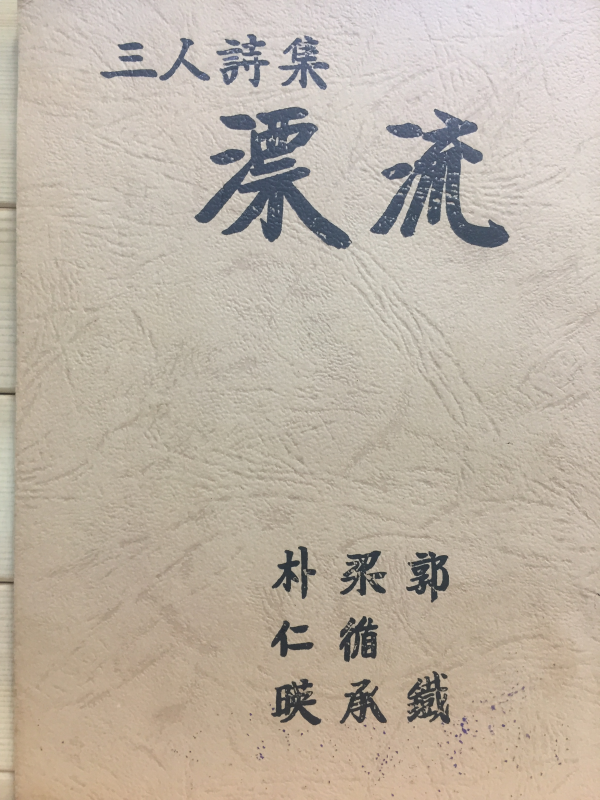 三人詩集
漂流
郭鐵
梁循承
朴仁暎